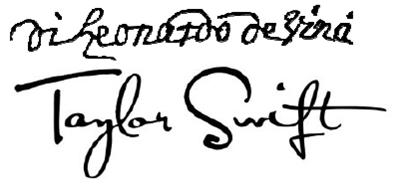 di Leonardo de Vinci
Taylor Swift